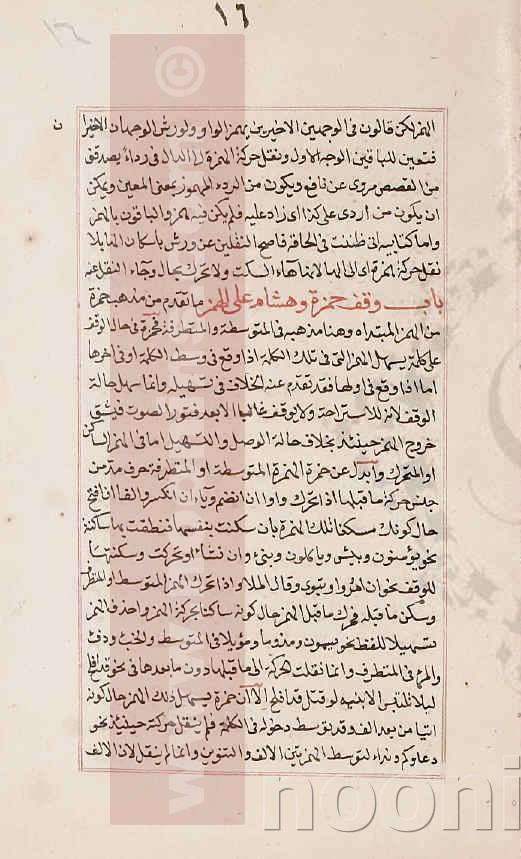 ١٦
الهمز لكن قالون في الوجهين الاخيرين يهمز الواو ولورش الوجهان الاخيرا
ن
فتعين للباقين الوجه الاول ونقل حركة الهمزة الى الدال في ردءا يصدقني
من القصص مروى عن نافع ويكون من الردء المهموز بمعنى المعين ويمكن
ان يكون من اردى على كذا اى زاد عليه فلم يكن فيه همز والباقون بالهمز
واما كتابيه انى ظننت في الحاقة فاصح النقلين عن ورش باسكان الها بلا
نقل حركة الهمزة اى الى الها لانها هاء السكت ولا تحرك بحال وجاء النقل عنه
باب وقف حمزة وهشام على الهمز ما تقدم من مذهب حمزة
من الهمز المبتداه وهنا مذهبه في المتوسطة والمتطرفة فحمزة في حال الوقف
على كلمة يسهل الهمز التى في تلك الكلمة اذا وقع في وسط الكلمة او في اخرها
اما اذا وقع في اولها فقد تقدم عنه الخلاف في تسهيله وانما سهل حالة
الوقف لانه للاستراحة ولا يوقف غالبا الا بعد فتور الصوت فيشق
خروج الهمز حينئذ بخلاف حالة الوصل والتسهيل اما في الهمز الساكن
او المتحرك وابدل عن حمزة الهمزة المتوسطة او المتطرفة حرف مد من
جنس حركة ما قبلها اذا تحرك واوا ان انضم وياء ان انكسر والفا ان انفتح
حال كونك مسكنا تلك الهمزة بان سكنت بنفسها فنطقت بها ساكنة
نحو يؤمنون وبئس وياكلون ونبئ وان نشاء او تحركت وسكنتها
للوقف نحو ان امرؤا ويبدى وقال الملا واذا تحرك الهمز المتوسط او المتطرف
وسكن ما قبله فحرك ما قبل الهمز حال كونه ساكنا بحركة الهمز واحذف الهمز
تسهيلا للفظ نحو ومذوما وموئلا في المتوسط والخبء ودفء
والمرء في المتطرف وانما نقلت الحركة الى ما قبلها دون ما بعدها في نحو قد افلح
ليلا تلتبس الابنية لو قيل قد فلح الا ان حمزة يسهل ذلك الهمز حال كونه
اتيا من بعد الف وقد توسط دخوله في الكلمة فلم ينقل حركة حينئذ نحو
دعاوكم ونداء لتوسط الهمز بين الالف والتنوين وانما لم ينقل لان الالف
nooni